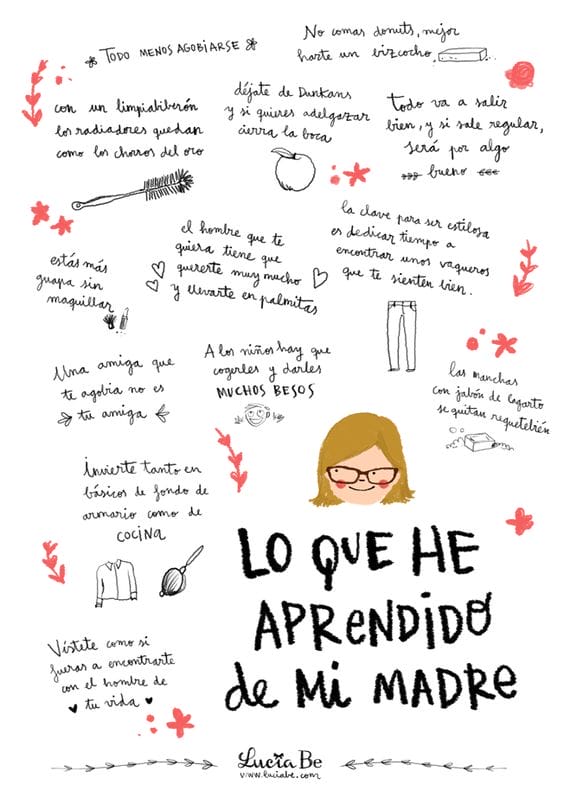 TODO MENOS AGOBIARSE
No comas donuts, mejor
harte un bizcocho.
con un limpiabiberón
los radiadores quedan
como los chorros del oro
déjate de Dunkans
y si quieres adelgazar
cierra la boca
Todo va a salir
bien, y si sale regular,
será por algo
bueno
estás más
guapa sin
maquillar
el hombre que te
quiera tiene que
quererte muy mucho
y llevarte en palmitas
la clave para ser estilosa
es dedicar tiempo a
encontrar unos vaqueros
que te sienten bien.
Una amiga que
te agobia no es
tu amiga
A los niños hay que
cogerles y darles
MUCHOS BESOS
las manchas
con jabón de lagarto
se quitan requetebién
invierte tanto en
básicos de fondo de
armario como de
COCINA
Vístete como si
fueras a encontrarte
con el hombre de
tu vida
LO QUE HE
APRENDIDO
de Mi MADRE
Lucía Be
www.luciabe.com